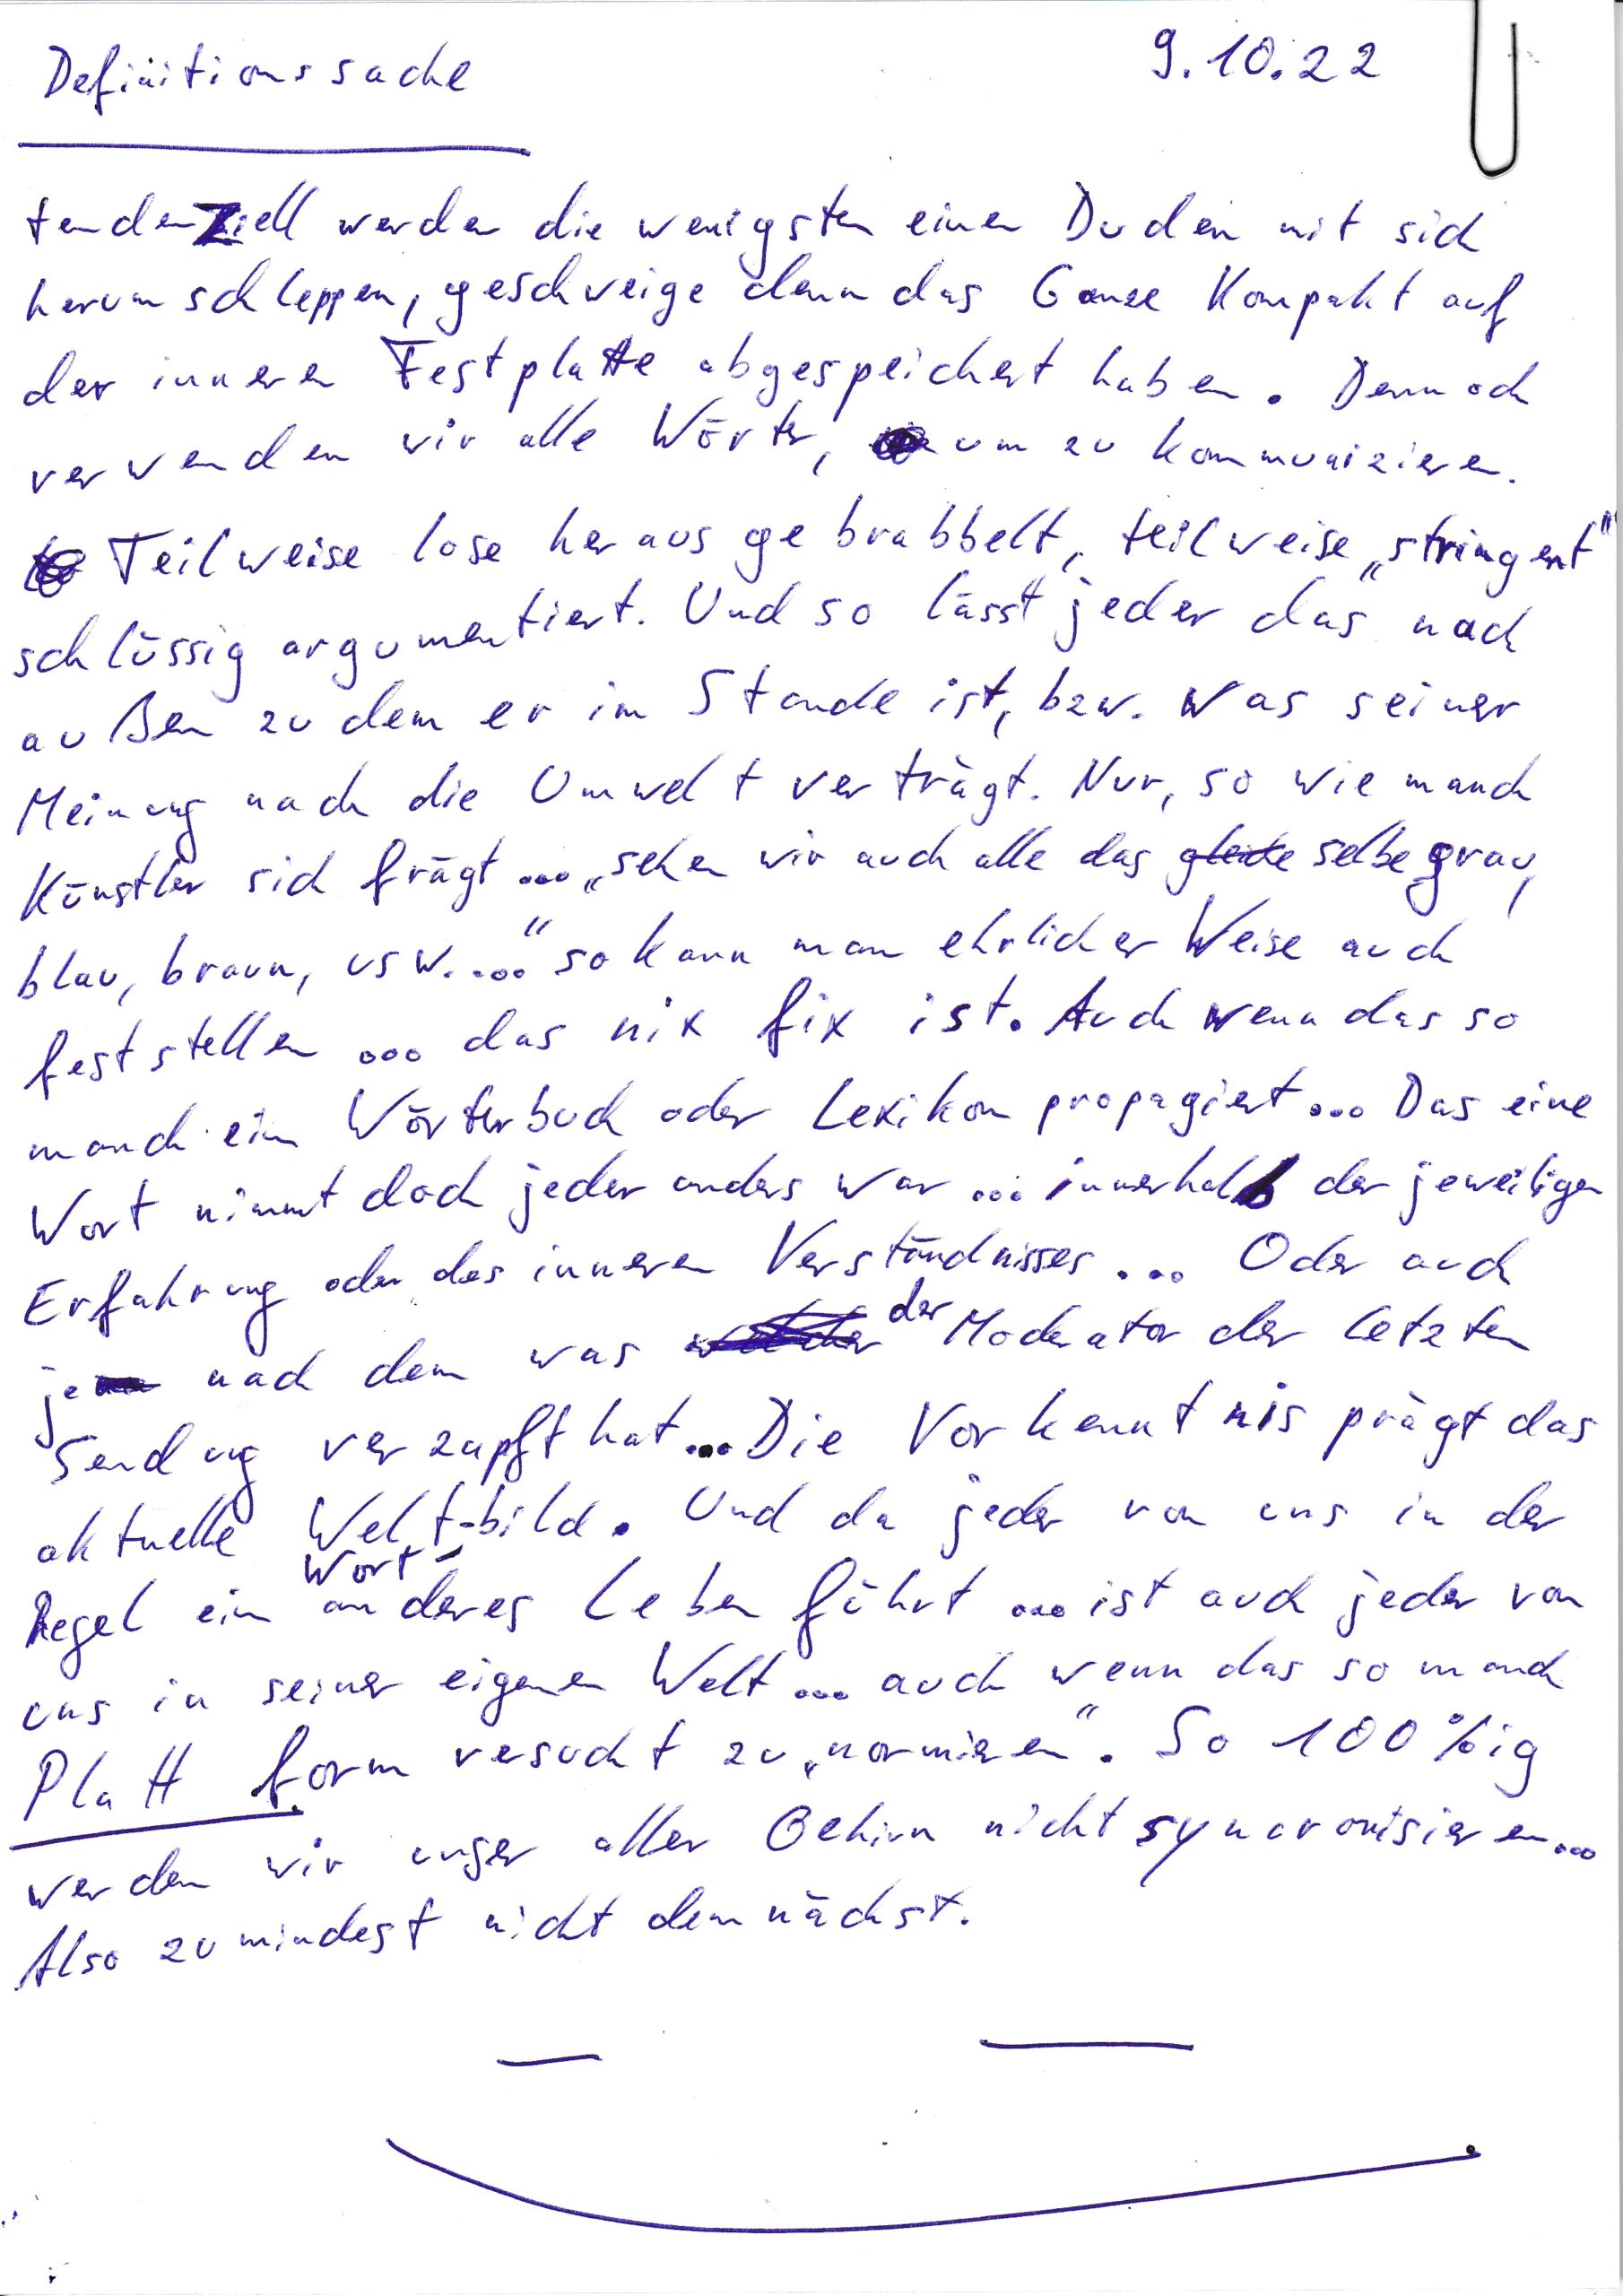 Definitionssache 9.10.22
tendenziell werden die wenigsten einen Duden mit sich
herum schleppen, geschweige denn das Ganze Kompakt auf
der inneren Festplatte abgespeichert haben. Dennoch
verwenden wir alle Wörter, um zu kommunizieren.
Teilweise lose heraus gebrabbelt, teilweise „stringent"
schlüssig argumentiert. Und so lässt jeder das nach
außen zu dem er im Stande ist, bzw. was seiner
Meinung nach die Umwelt verträgt. Nur, so wie manch
Künstler sich frägt ... „sehen wir auch alle das gleiche selbe grau,
blau, braun, usw. ..." so kann man ehrlicher Weise auch
feststellen ... das nix fix ist. Auch wenn das so
manch ein Wörterbuch oder Lexikon propagiert ... Das eine
Wort nimmt doch jeder anders war ... innerhalb der jeweiligen
Erfahrung oder des inneren Verständnisses ... Oder auch
je nach dem was der Moderator der letzten
Sendung verzapft hat ... Die Vorkenntnis prägt das
aktuelle Welt-bild. Und da jeder von uns in der
Wort-
Regel ein anderes Leben führt ... ist auch jeder von
uns in seiner eigenen Welt ... auch wenn das so manch
Platt form vesucht zu „normieren". So 100%ig
werden wir unser aller Gehirn nicht syncronisieren ...
Also zumindest nicht demnächst.